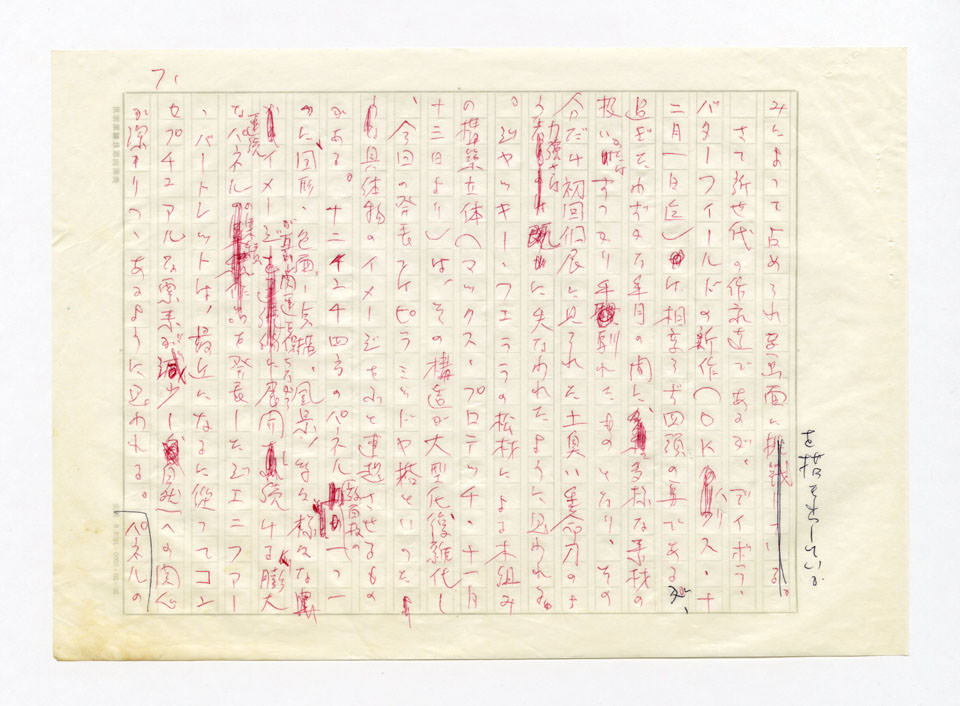 7.
みによって占められ画面に挑戦している。
を揺らしている
さて近世代の作家達であるが、デイボラ・
バターフィールドの新作(OKハリス・十
二月一日迄)は相変らず四頭の馬であるが、
過ぎたわずかな年月の間に多様な素材の
扱いすっかり手馴れたものとなり、その
分だけ初回個展に見られた土臭い生命力のよ
うな力強さは既に失なわれたように見われる
。ジャッキー・フェララの松材による木組み
の構築立体(マックス・プロテッチ・十一月
十三日より)は、その構造が大型化複雑化し
、今回の発表ではピラミッドや塔といった
具体物のイメージをふと連想させるもの
がある。十二×十二四方のパネル数百枚の一つ一
つに図形、色面、点描、風景、等々様々な異
イメージが直間連を保ちながら展開し続ける膨大
なパネルの連続の集積を発表したジェニファー
・バートレットは、最近になるに従ってコン
セプチュアルな要素が減少し自然への関心
が深まりつつあるように思われる。パネルの